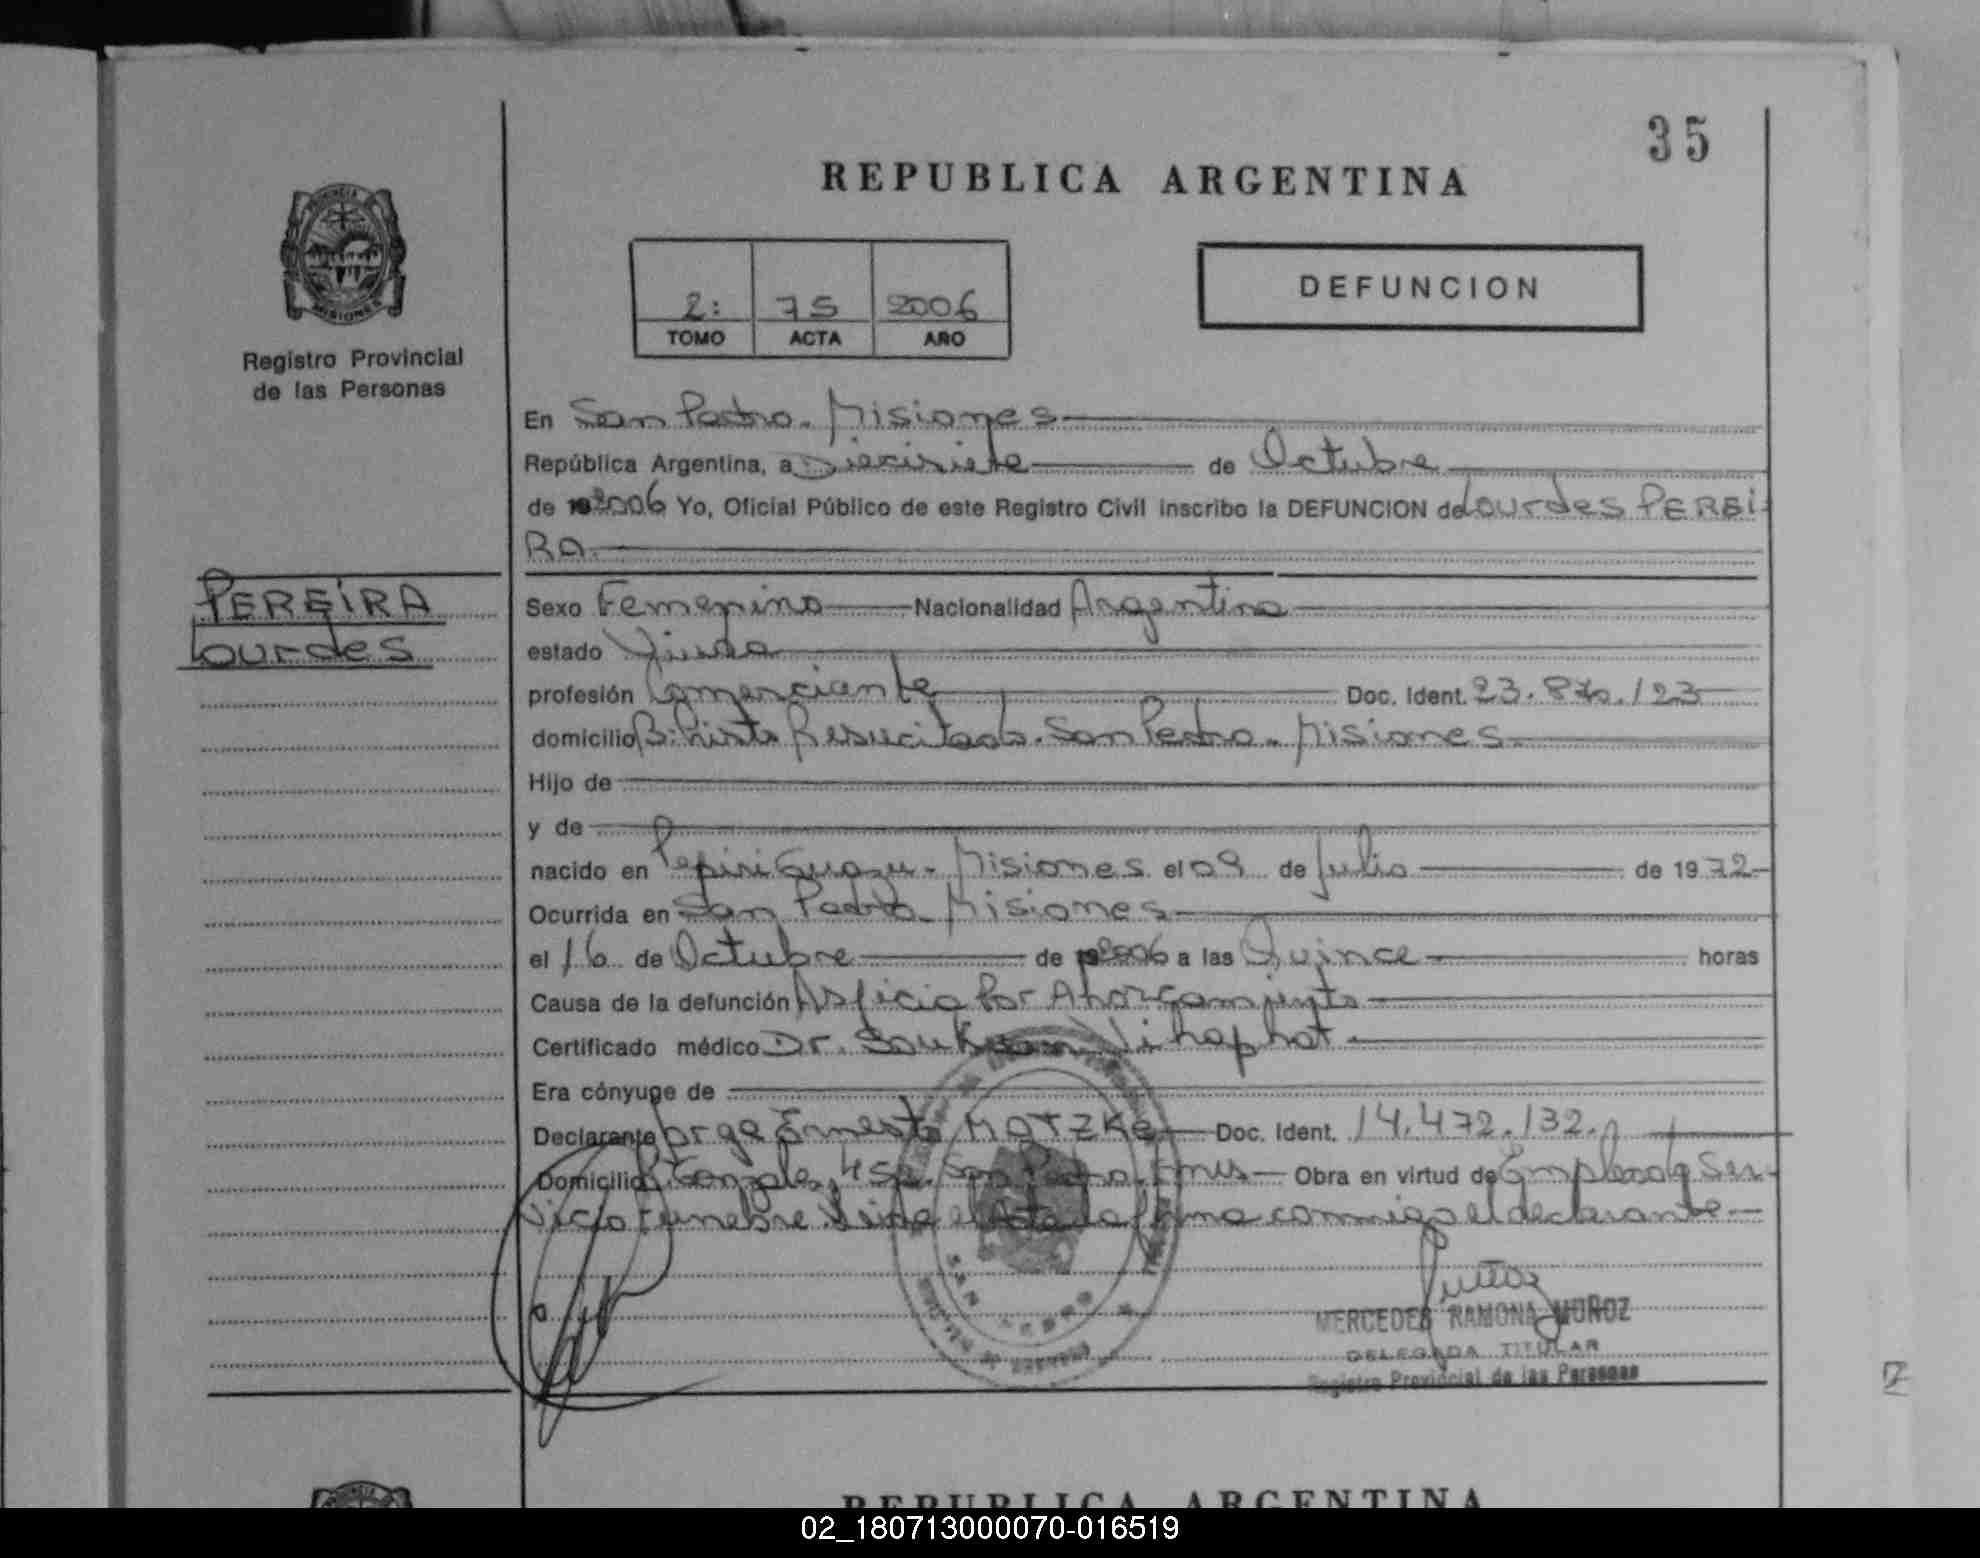 35
REPUBLICA ARGENTINA
2: 75 2006
TOMO ACTA AÑO
DEFUNCION
Registro Provincial
de las Personas
En San Pedro. Misiones
República Argentina, a Diecisiete de Octubre
de 2006 Yo, Oficial Público de este Registro Civil inscribo la DEFUNCION de Lourdes PEREI-
RA.
PEREIRA
Lourdes
Sexo Femenino Nacionalidad Argentina
estado Viuda
profesión Comerciante Doc. Ident. 23. /23
domicilio B: Cristo Resucitado. San Pedro. Misiones.
Hijo de
y de
nacido en Pepiri Guazu. Misiones. el 09 de Julio de 1972-
Ocurrida en San Pedro. Misiones
el 16 de Octubre de 2006 a las Quince horas
Causa de la defunción Asficia Por Ahorcamiento
Certificado médico Dr. Vihaphat.
Era cónyuge de
Declarante Jorge Ernesto MATZKE Doc. Ident. 14.472.132.
Domicilio San Pedro. Obra en virtud de Empleado Ser-
vicio Funebre. el Acta la firma conmigo el declarante
MERCEDES RAMONA MUÑOZ
DELEGADA TITULAR
Registro Provincial de las Personas
REPUBLICA ARGENTINA
02_180713000070-016519